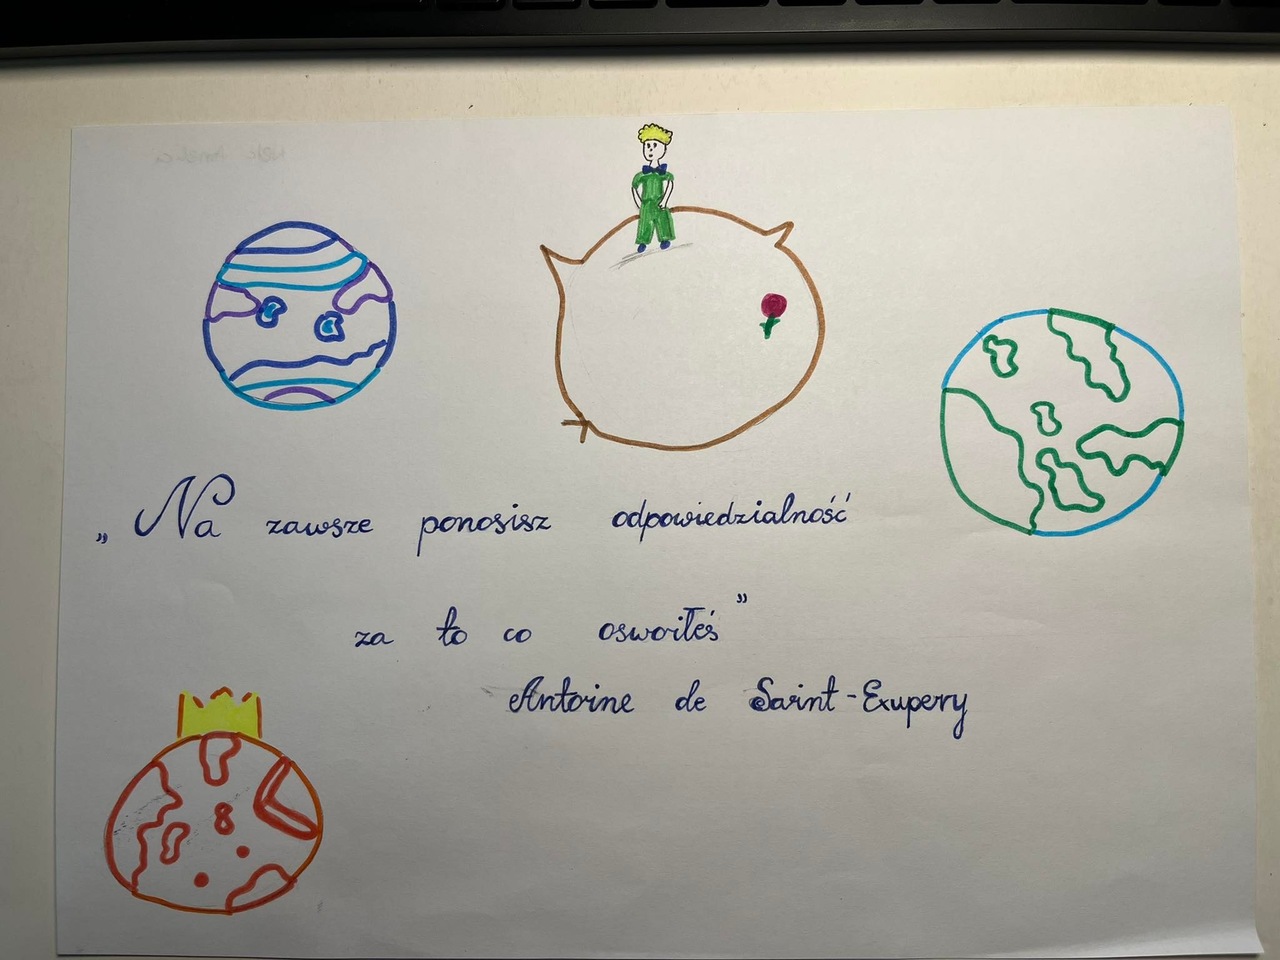 „Na zawsze ponosisz odpowiedzialność
za to co oswoiłeś”
Antoine de Saint-Exupery